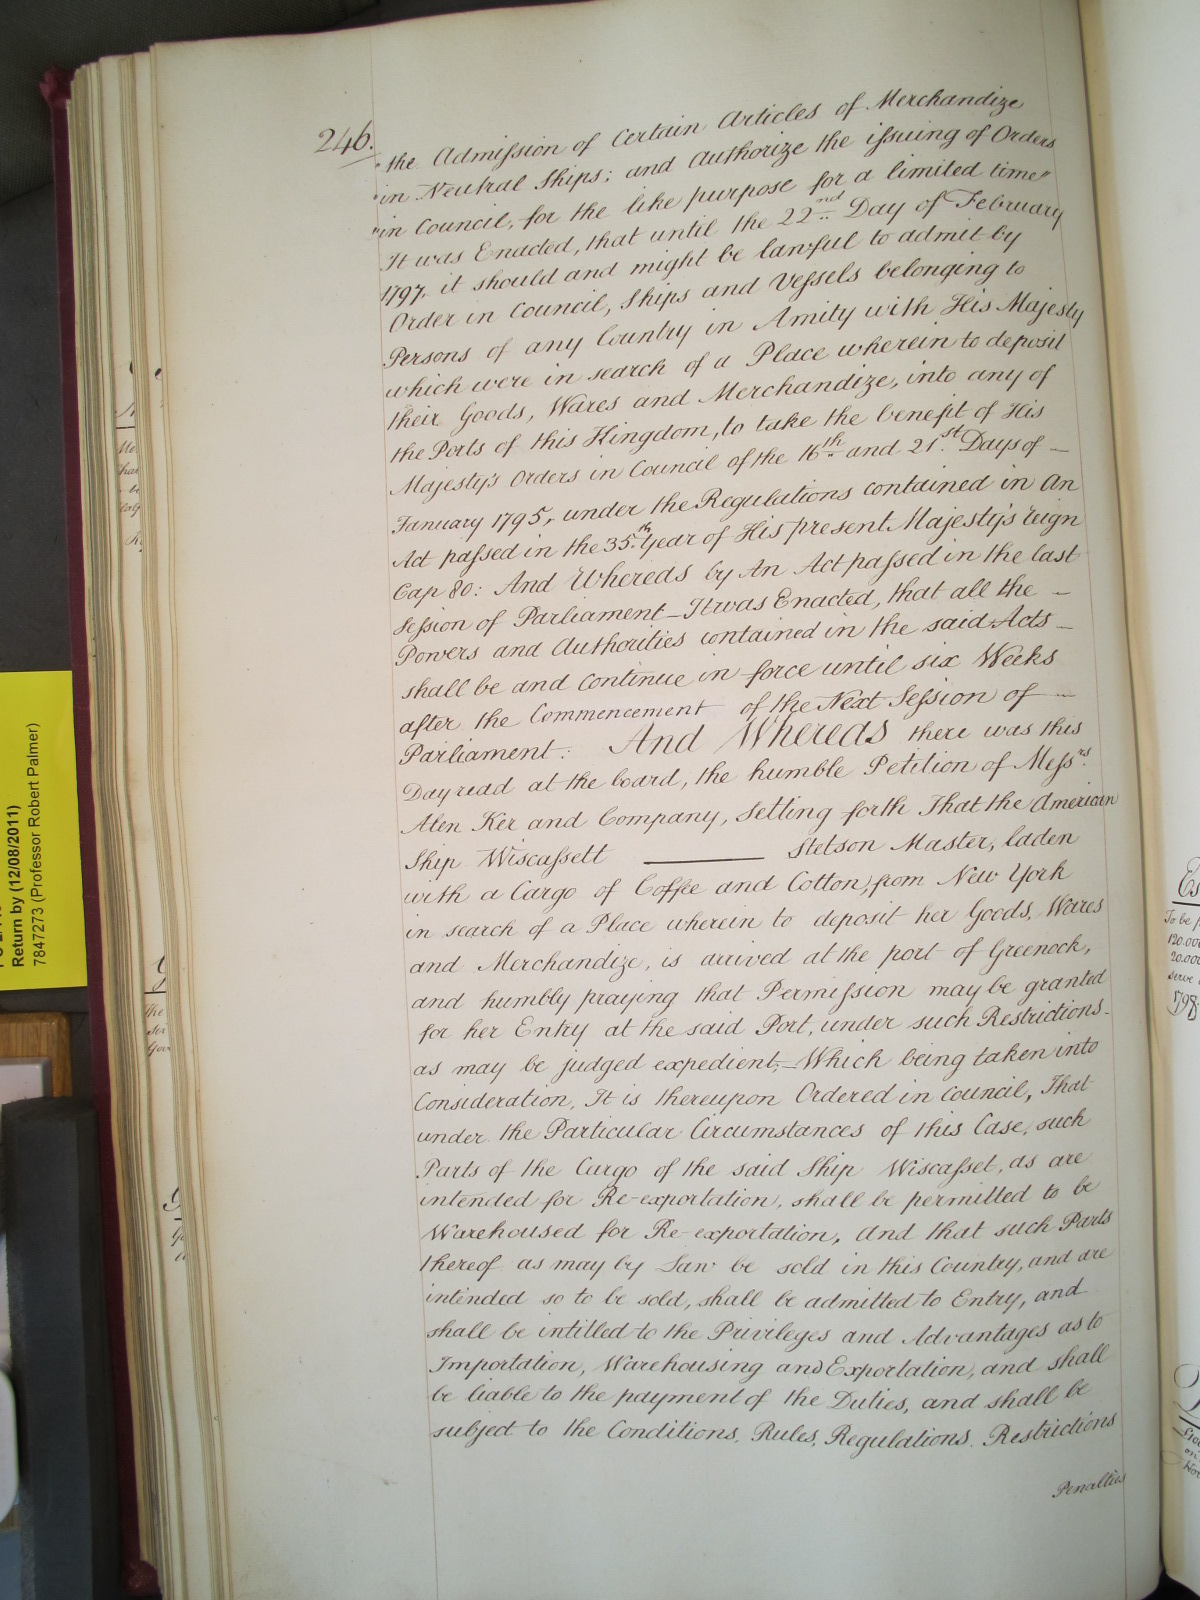 246.
"the Admission of Certain Articles of Merchandize
"in Neutral Ships; and Authorize the issuing of Orders
"in Council, for the like purpose for a limited time"
It was Enacted, that until the 22nd Day of February
1797, it should and might be lawful to admit by
Order in Council, Ships and Vessels belonging to
Persons of any Country in Amity with His Majesty
which were in search of a Place wherein to deposit
their Goods, Wares and Merchandize, into any of
the Ports of this Kingdom, to take the benefit of His
Majesty's Orders in Council of the 16th and 21st Days of —
January 1795, under the Regulations contained in An
Act passed in the 35th Year of His present Majesty's reign
Cap 80: And Whereas by An Act passed in the last
Session of Parliament — It was Enacted, that all the —
Powers and Authorities contained in the said Acts —
shall be and continue in force until six Weeks
after the Commencement of the Next Session of —
Parliament: And Whereas there was this
Day read at the board, the humble Petition of Messrs
Alen Ker and Company, setting forth That the American
Ship Wiscassett ——— Stetson Master, laden
with a Cargo of Coffee and Cotton, from New York
in search of a Place wherein to deposit her Goods, Wares
and Merchandize, is arrived at the port of Greenock,
and humbly praying that Permission may be granted
for her Entry at the said Port, under such Restrictions —
as may be judged expedient; — Which being taken into
Consideration, It is thereupon Ordered in Council, That
under the Particular Circumstances of this Case, such
Parts of the Cargo of the said Ship Wiscasset, as are
intended for Re-exportation, shall be permitted to be
Warehoused for Re-exportation, and that such Parts
thereof as may by Law be sold in this Country, and are
intended so to be sold, shall be admitted to Entry, and
shall be intitled to the Privileges and Advantages as to
Importation, Warehousing and Exportation, and shall
be liable to the payment of the Duties, and shall be
subject to the Conditions, Rules, Regulations, Restrictions
Penalties
Return by (12/08/2011)
7847273 (Professor Robert Palmer)
To be p
120.000
20.000
serve
1798